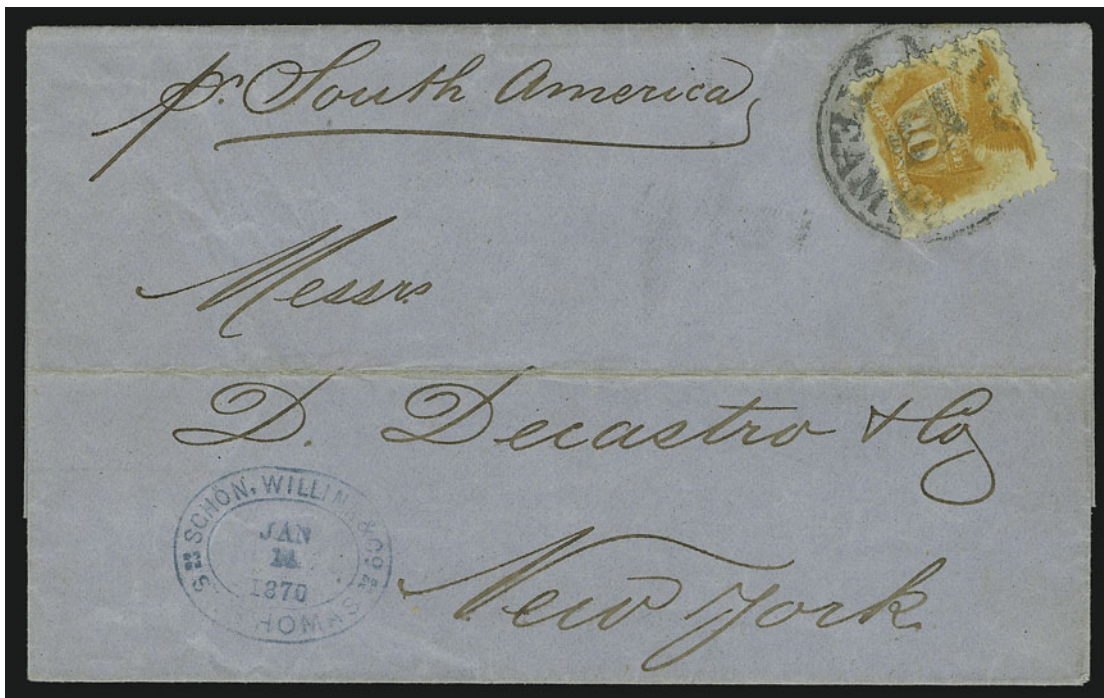 pr. South America
10
Messrs
D. Decastro & Co
New York
SCHÖN, WILLINK & Co
JAN
1870
ST THOMAS